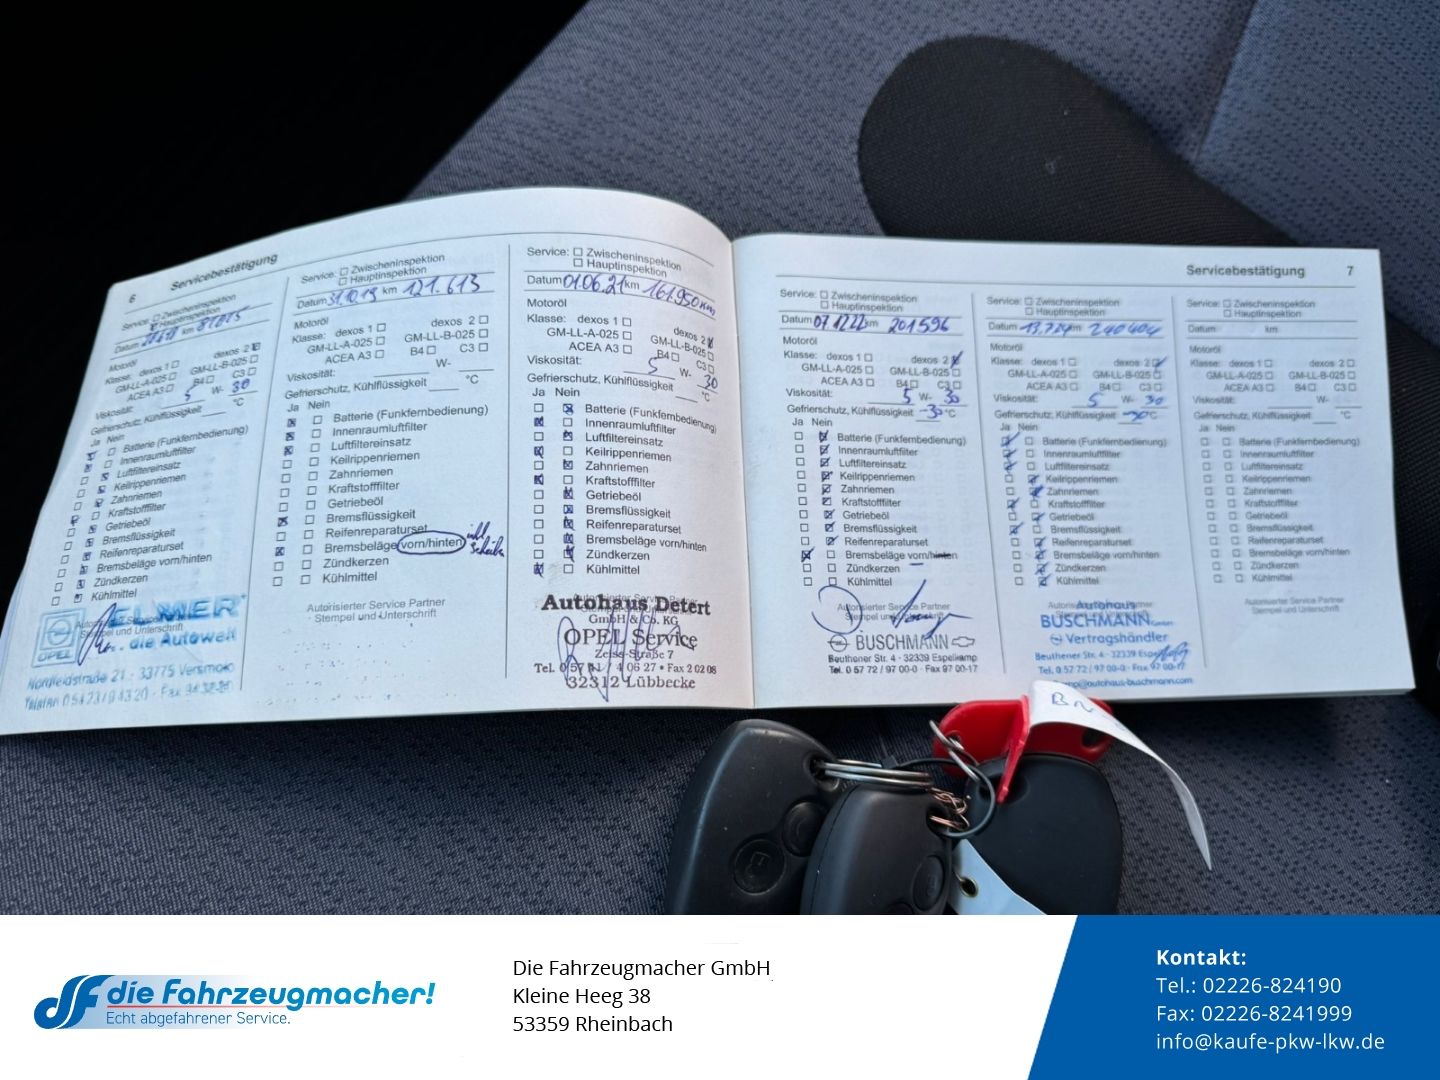 6 Servicebestätigung
Service: Zwischeninspektion
Hauptinspektion
Datum km 81075
Motoröl
Klasse: dexos 1 dexos 2
GM-LL-A-025 GM-LL-B-025
ACEA A3 B4 C3
Viskosität: 5 W- 30
Gefrierschutz, Kühlflüssigkeit °C
Ja Nein
Batterie (Funkfernbedienung)
Innenraumluftfilter
Luftfiltereinsatz
Keilrippenriemen
Zahnriemen
Kraftstofffilter
Getriebeöl
Bremsflüssigkeit
Reifenreparaturset
Bremsbeläge vorn/hinten
Zündkerzen
Kühlmittel
Stempel und Unterschrift
OPEL
... die Autowelt
33775 Versmold
Service: Zwischeninspektion
Hauptinspektion
Datum 31.10.19 km 121.613
Motoröl
Klasse: dexos 1 dexos 2
GM-LL-A-025 GM-LL-B-025
ACEA A3 B4 C3
Viskosität: W-
Gefrierschutz, Kühlflüssigkeit °C
Ja Nein
Batterie (Funkfernbedienung)
Innenraumluftfilter
Luftfiltereinsatz
Keilrippenriemen
Zahnriemen
Kraftstofffilter
Getriebeöl
Bremsflüssigkeit
Reifenreparaturset
Bremsbeläge vorn/hinten
Zündkerzen
Kühlmittel
Autorisierter Service Partner
Stempel und Unterschrift
Service: Zwischeninspektion
Hauptinspektion
Datum 01.06.21 km 161.950 km
Motoröl
Klasse: dexos 1 dexos 2
GM-LL-A-025 GM-LL-B-025
ACEA A3 B4 C3
Viskosität: 5 W- 30
Gefrierschutz, Kühlflüssigkeit °C
Ja Nein
Batterie (Funkfernbedienung)
Innenraumluftfilter
Luftfiltereinsatz
Keilrippenriemen
Zahnriemen
Kraftstofffilter
Getriebeöl
Bremsflüssigkeit
Reifenreparaturset
Bremsbeläge vorn/hinten
Zündkerzen
Kühlmittel
Autohaus Detert
GmbH & Co. KG
OPEL Service
Zeiss-Straße 7
32312 Lübbecke
Servicebestätigung 7
Service: Zwischeninspektion
Hauptinspektion
Datum 07.12.22 km 201596
Motoröl
Klasse: dexos 1 dexos 2
GM-LL-A-025 GM-LL-B-025
ACEA A3 B4 C3
Viskosität: 5 W- 30
Gefrierschutz, Kühlflüssigkeit -30 °C
Ja Nein
Batterie (Funkfernbedienung)
Innenraumluftfilter
Luftfiltereinsatz
Keilrippenriemen
Zahnriemen
Kraftstofffilter
Getriebeöl
Bremsflüssigkeit
Reifenreparaturset
Bremsbeläge vorn/hinten
Zündkerzen
Kühlmittel
Autorisierter Service Partner
Stempel und Unterschrift
BUSCHMANN
Beuthener Str. 4 · 32339 Espelkamp
Tel. 0 57 72 / 97 00-0 · Fax 97 00-17
Service: Zwischeninspektion
Hauptinspektion
Datum km 240404
Motoröl
Klasse: dexos 1 dexos 2
GM-LL-A-025 GM-LL-B-025
ACEA A3 B4 C3
Viskosität: 5 W- 30
Gefrierschutz, Kühlflüssigkeit -30 °C
Ja Nein
Batterie (Funkfernbedienung)
Innenraumluftfilter
Luftfiltereinsatz
Keilrippenriemen
Zahnriemen
Kraftstofffilter
Getriebeöl
Bremsflüssigkeit
Reifenreparaturset
Bremsbeläge vorn/hinten
Zündkerzen
Kühlmittel
Autohaus
BUSCHMANN GmbH
Vertragshändler
Beuthener Str. 4 · 32339
Tel. 0 57 72 / 97 00-0 · Fax 97 00-17
@autohaus-buschmann.com
Service: Zwischeninspektion
Hauptinspektion
Datum km
Motoröl
Klasse: dexos 1 dexos 2
GM-LL-A-025 GM-LL-B-025
ACEA A3 B4 C3
Viskosität: W-
Gefrierschutz, Kühlflüssigkeit °C
Ja Nein
Batterie (Funkfernbedienung)
Innenraumluftfilter
Luftfiltereinsatz
Keilrippenriemen
Zahnriemen
Kraftstofffilter
Getriebeöl
Bremsflüssigkeit
Reifenreparaturset
Bremsbeläge vorn/hinten
Zündkerzen
Kühlmittel
Autorisierter Service Partner
Stempel und Unterschrift
die Fahrzeugmacher!
Echt abgefahrener Service.
Die Fahrzeugmacher GmbH
Kleine Heeg 38
53359 Rheinbach
Kontakt:
Tel.: 02226-824190
Fax: 02226-8241999
info@kaufe-pkw-lkw.de